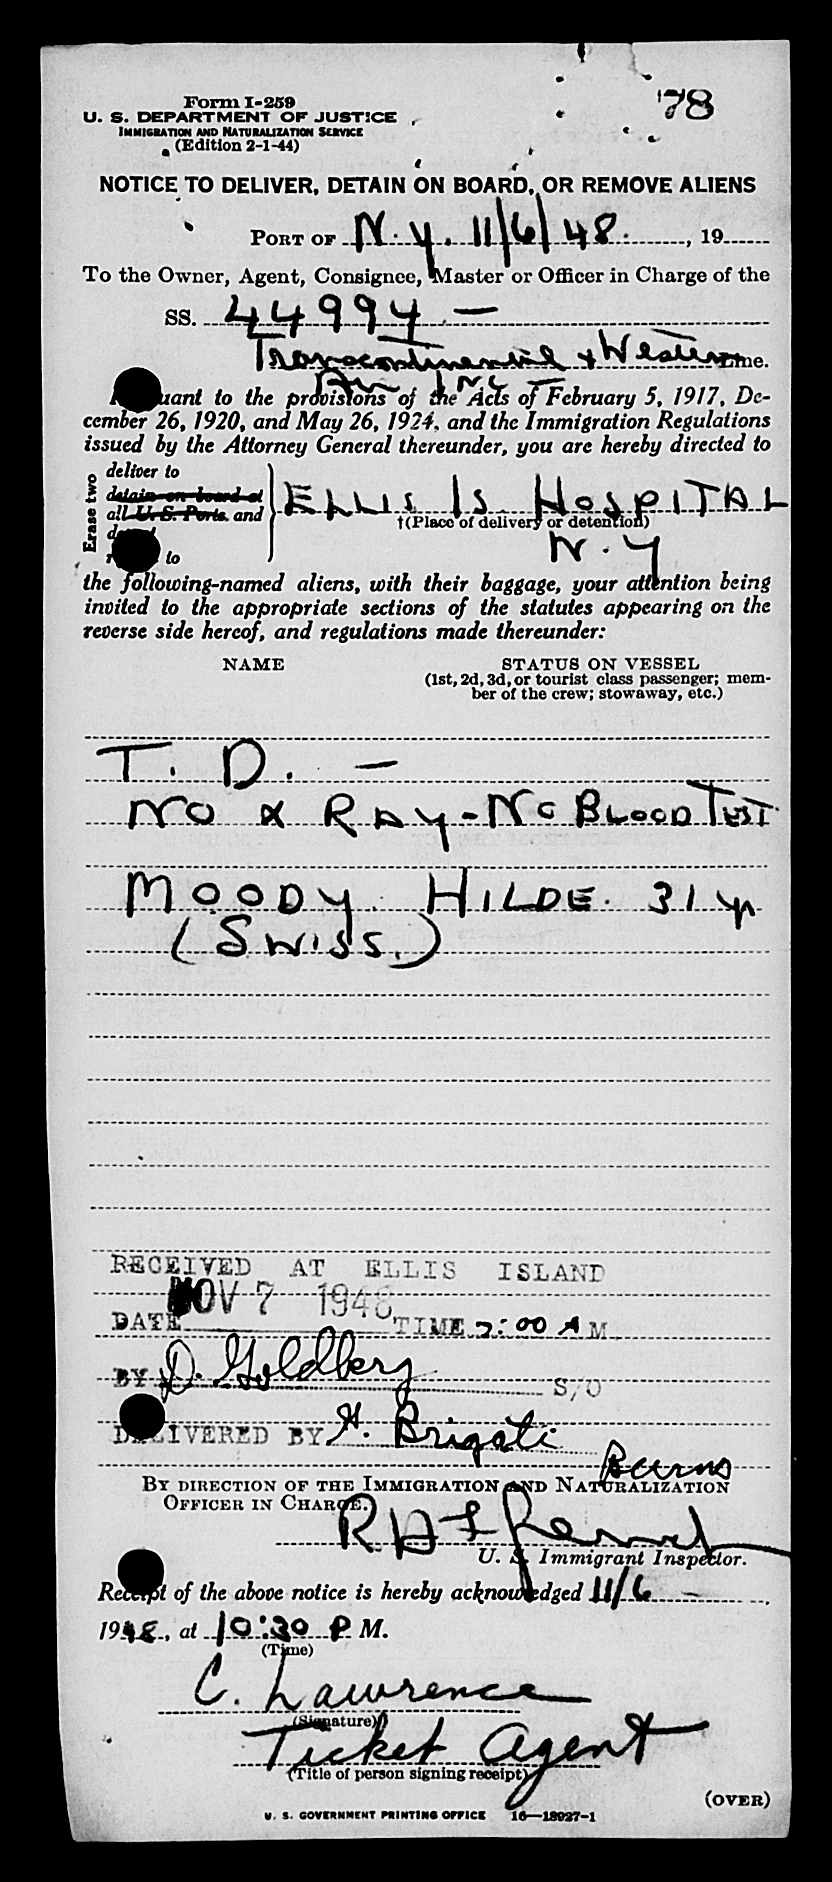 Form I-259
U. S. DEPARTMENT OF JUSTICE
IMMIGRATION AND NATURALIZATION SERVICE
(Edition 2-1-44)
'78
NOTICE TO DELIVER, DETAIN ON BOARD, OR REMOVE ALIENS
PORT OF N.Y. 11/6/48. , 19
To the Owner, Agent, Consignee, Master or Officer in Charge of the
SS. 44994 —
Transcontinental & Western Line.
Air Inc —
uant to the provisions of the Acts of February 5, 1917, De-
cember 26, 1920, and May 26, 1924, and the Immigration Regulations
issued by the Attorney General thereunder, you are hereby directed to
Erase two
deliver to
detain on board at
all U. S. Ports and
to
ELLIS IS. HOSPITAL
†(Place of delivery or detention)
N.Y
the following-named aliens, with their baggage, your attention being
invited to the appropriate sections of the statutes appearing on the
reverse side hereof, and regulations made thereunder:
NAME STATUS ON VESSEL
(1st, 2d, 3d, or tourist class passenger; mem-
ber of the crew; stowaway, etc.)
T. D. —
NO X RAY - NO BLOOD TEST
MOODY HILDE. 31 yr
(SWISS.)
RECEIVED AT ELLIS ISLAND
NOV 7 1948
DATE TIME 2:00 A M
BY D. Goldberg S/O
DELIVERED BY G. Brigati
Burns
BY DIRECTION OF THE IMMIGRATION AND NATURALIZATION
OFFICER IN CHARGE.
U. S. Immigrant Inspector.
Receipt of the above notice is hereby acknowledged 11/6 ,
1948, at 10:30 P M.
(Time)
C. Lawrence
(Signature)
Ticket Agent
(Title of person signing receipt)
(OVER)
U. S. GOVERNMENT PRINTING OFFICE 16—18927-1